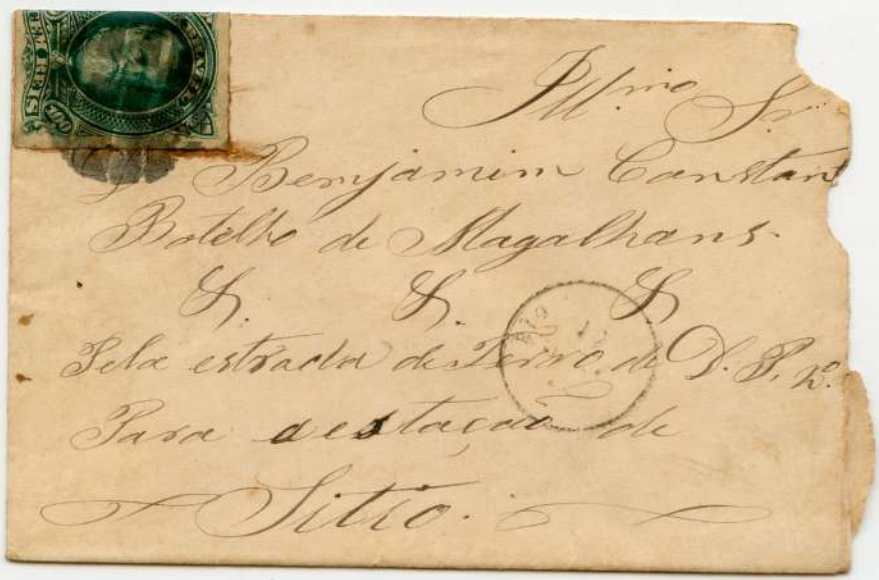 BRAZIL
100
Ill.mo Sr.
Benjamim Constan
Botelho de Magalhans.
S. S. S
Pela estrada de Ferro de D. P. 2º.
Para a estação de
Sitio.